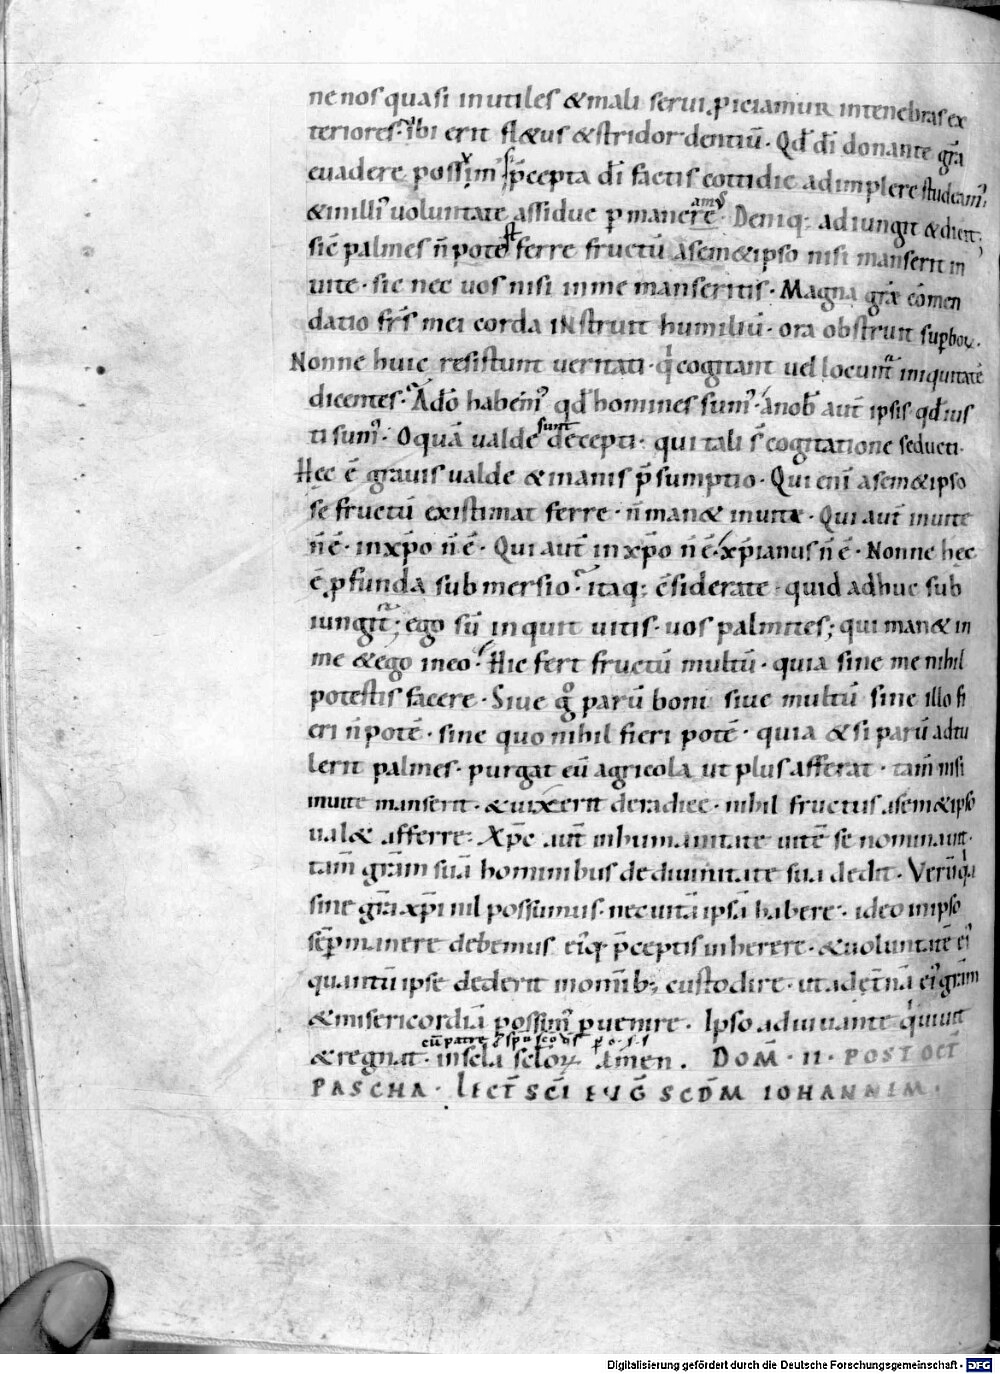 ne nos quasi inutiles &mali serui piciamur intenebras ex
teriores· ibi erit fl&us &stridor dentiū· Qđ dī donante grā
euadere possim' p̄cepta dī factis cottidie adimplere studeam';
&inilli' uoluntate assidue pmanere amus· Deniq; adiungit & dicit;
sic palmes n̄ potest ferre fructū asem&ipso nisi manserit in
uite· sic nec uos nisi inme manseritis· Magna grae cōmen
datio frs̄ mei corda instruit humiliū· ora obstruit supboꝝ.
Nonne huic resistunt ueritati· qi cogitant uel locunt iniquitatē
dicentes· Adō habem' qđ homines sum'· anob aut̄ ipsis qđ ius
ti sum'· O quā ualde sunt decepti· qui tali s̄ cogitatione seducti·
Hec ē grauis ualde &inanis p̄sumptio· Qui enī asem&ipso
se fructū existimat ferre· n̄ man& inuite· Qui aut̄ inuite
n̄ ē· inxp̄o n̄ ē· Qui aut̄ inxp̄o n̄ ē· xp̄ianus n̄ ē· Nonne hec
ē pfunda submersio· itaq; c̄siderate· quid adhuc sub
iungit; ego sū inquit uitis· uos palmites; qui man& in
me &ego ineo· Hic fert fructū multū· quia sine me nihil
potestis facere· Siue g° parū boni siue multū sine illo fi
eri n̄ potē· sine quo nihil fieri potē· quia &si parū adtu
lerit palmes· purgat eū agricola ut plus afferat· tam̄ nisi
inuite manserit· &uixerit deradice· nihil fructus asem&ipso
ual& afferre· Xp̄c aut̄ inhumanitate uitē se nominauit·
tam̄ grām suā hominibus dediuinitate sua dedit· Verūqa
sine grā xp̄i nil possumus· nec uitā ipsā habere· ideo inipso
sēp manere debemus ei'q; p̄ceptis inherere· &uoluntatē ei'
quantū ipse dederit inomīb; custodire· ut ad et̄nā ei' grām
&misericordiā possim' puenire· Ipso adiuuante qi uiuit
cū patre & spū scō ds̄ p o· s· s
&regnat· insc̄la sc̄loꝝ Amen. DOM̄· II· POST OCT̄
PASCHA· LECT̄ SC̄I EUḠ SCD̄M IOHANNEM·
Digitalisierung gefördert durch die Deutsche Forschungsgemeinschaft - DFG